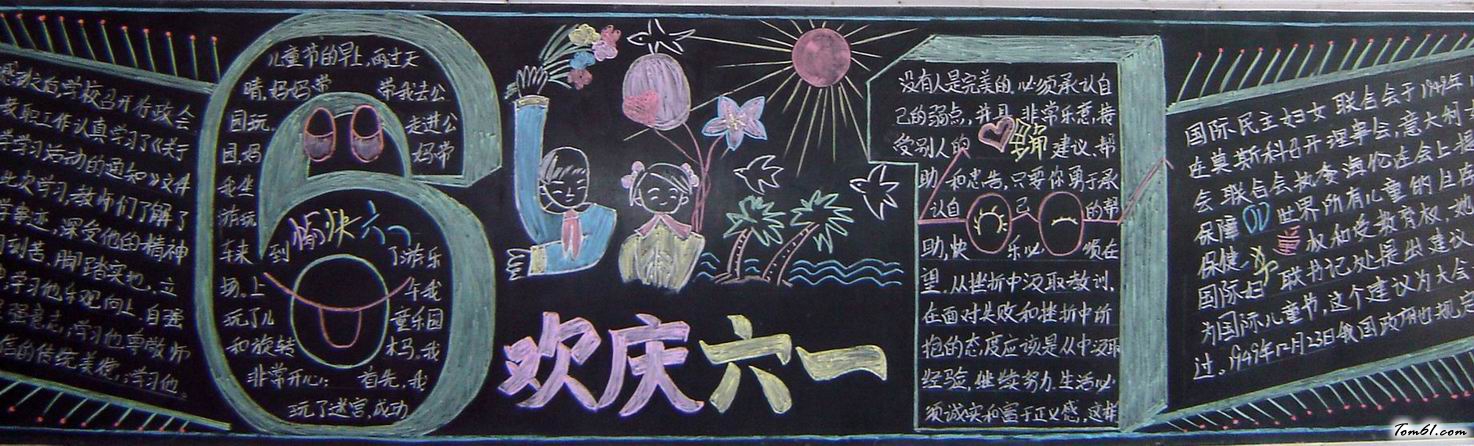 感动之后,学校召开行政会
教职工作认真学习了《关于
学学习活动的通知》文件
此次学习,教师们了解了
学事迹,深受他的精神
刻苦,脚踏实地、立
学习他乐观向上,自强
坚强意志,学习他尊敬师
信的传统美德,学习他
儿童节的早上,雨过天
晴,妈妈带 带我去公
园玩。 走进公
园,妈 妈带
我坐
游玩
车来 到 了游乐
愉快六一
场。上 午我
玩了儿 童乐园
和旋转 木马,我
非常开心; 首先,我
玩了迷宫,成功
欢庆六一
没有人是完美的,必须承认自
己的弱点,并且 非常乐意,接
受别人的 建议、帮
助 和忠告,只要你勇于承
认自 己 的帮
助,快 乐必 须在
望。从挫折中汲取教训,
在面对失败和挫折中所
抱的态度应该是从中汲取
经验,继续努力,生活必
须诚实和富于正义感,这样
国际民主妇女联合会于1949年11
在莫斯科召开理事会,意大利
会联合会执委海伦在会上提
保障 世界所有儿童的
保健、 权和受教育权,她
国际妇 联书记处提出建议
为国际儿童节,这个建议为大会
过。1949年12月23日我国政府也规定
Tom61.com